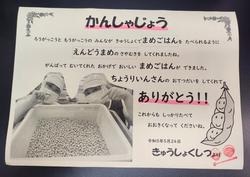 かんしゃじょう
ろうがっこうと もうがっこうの みんなが きゅうしょくでまめごはんを たべられるように
えんどうまめの さやむきを してくれましたね。
がんばって むいてくれた おかげで おいしい まめごはんが できました。
ちょうりいんさんの おてつだいを してくれて
ありがとう!!
これからも しっかりたべて
おおきくなって くださいね。
令和5年5月26日
きゅうしょくしつより